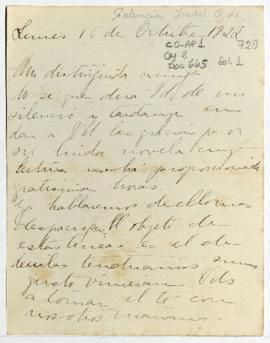 Lunes 16 de Octubre 1922
CO-AP1
Cg-2
Doc 665 fol. 1
720
Mi distinguida amiga
No se que dira Vd. de mi
silencio y tardanza en
dar a Vd las gracias por
su linda novela cuya
lectura me ha proporcionado
gratisimas horas.
Ya hablaremos de ello mas
despacio. El objeto de
estas lineas es el de
decirles tendriamos sumo
gusto vinieran Vds
a tomar el té con
nosotros